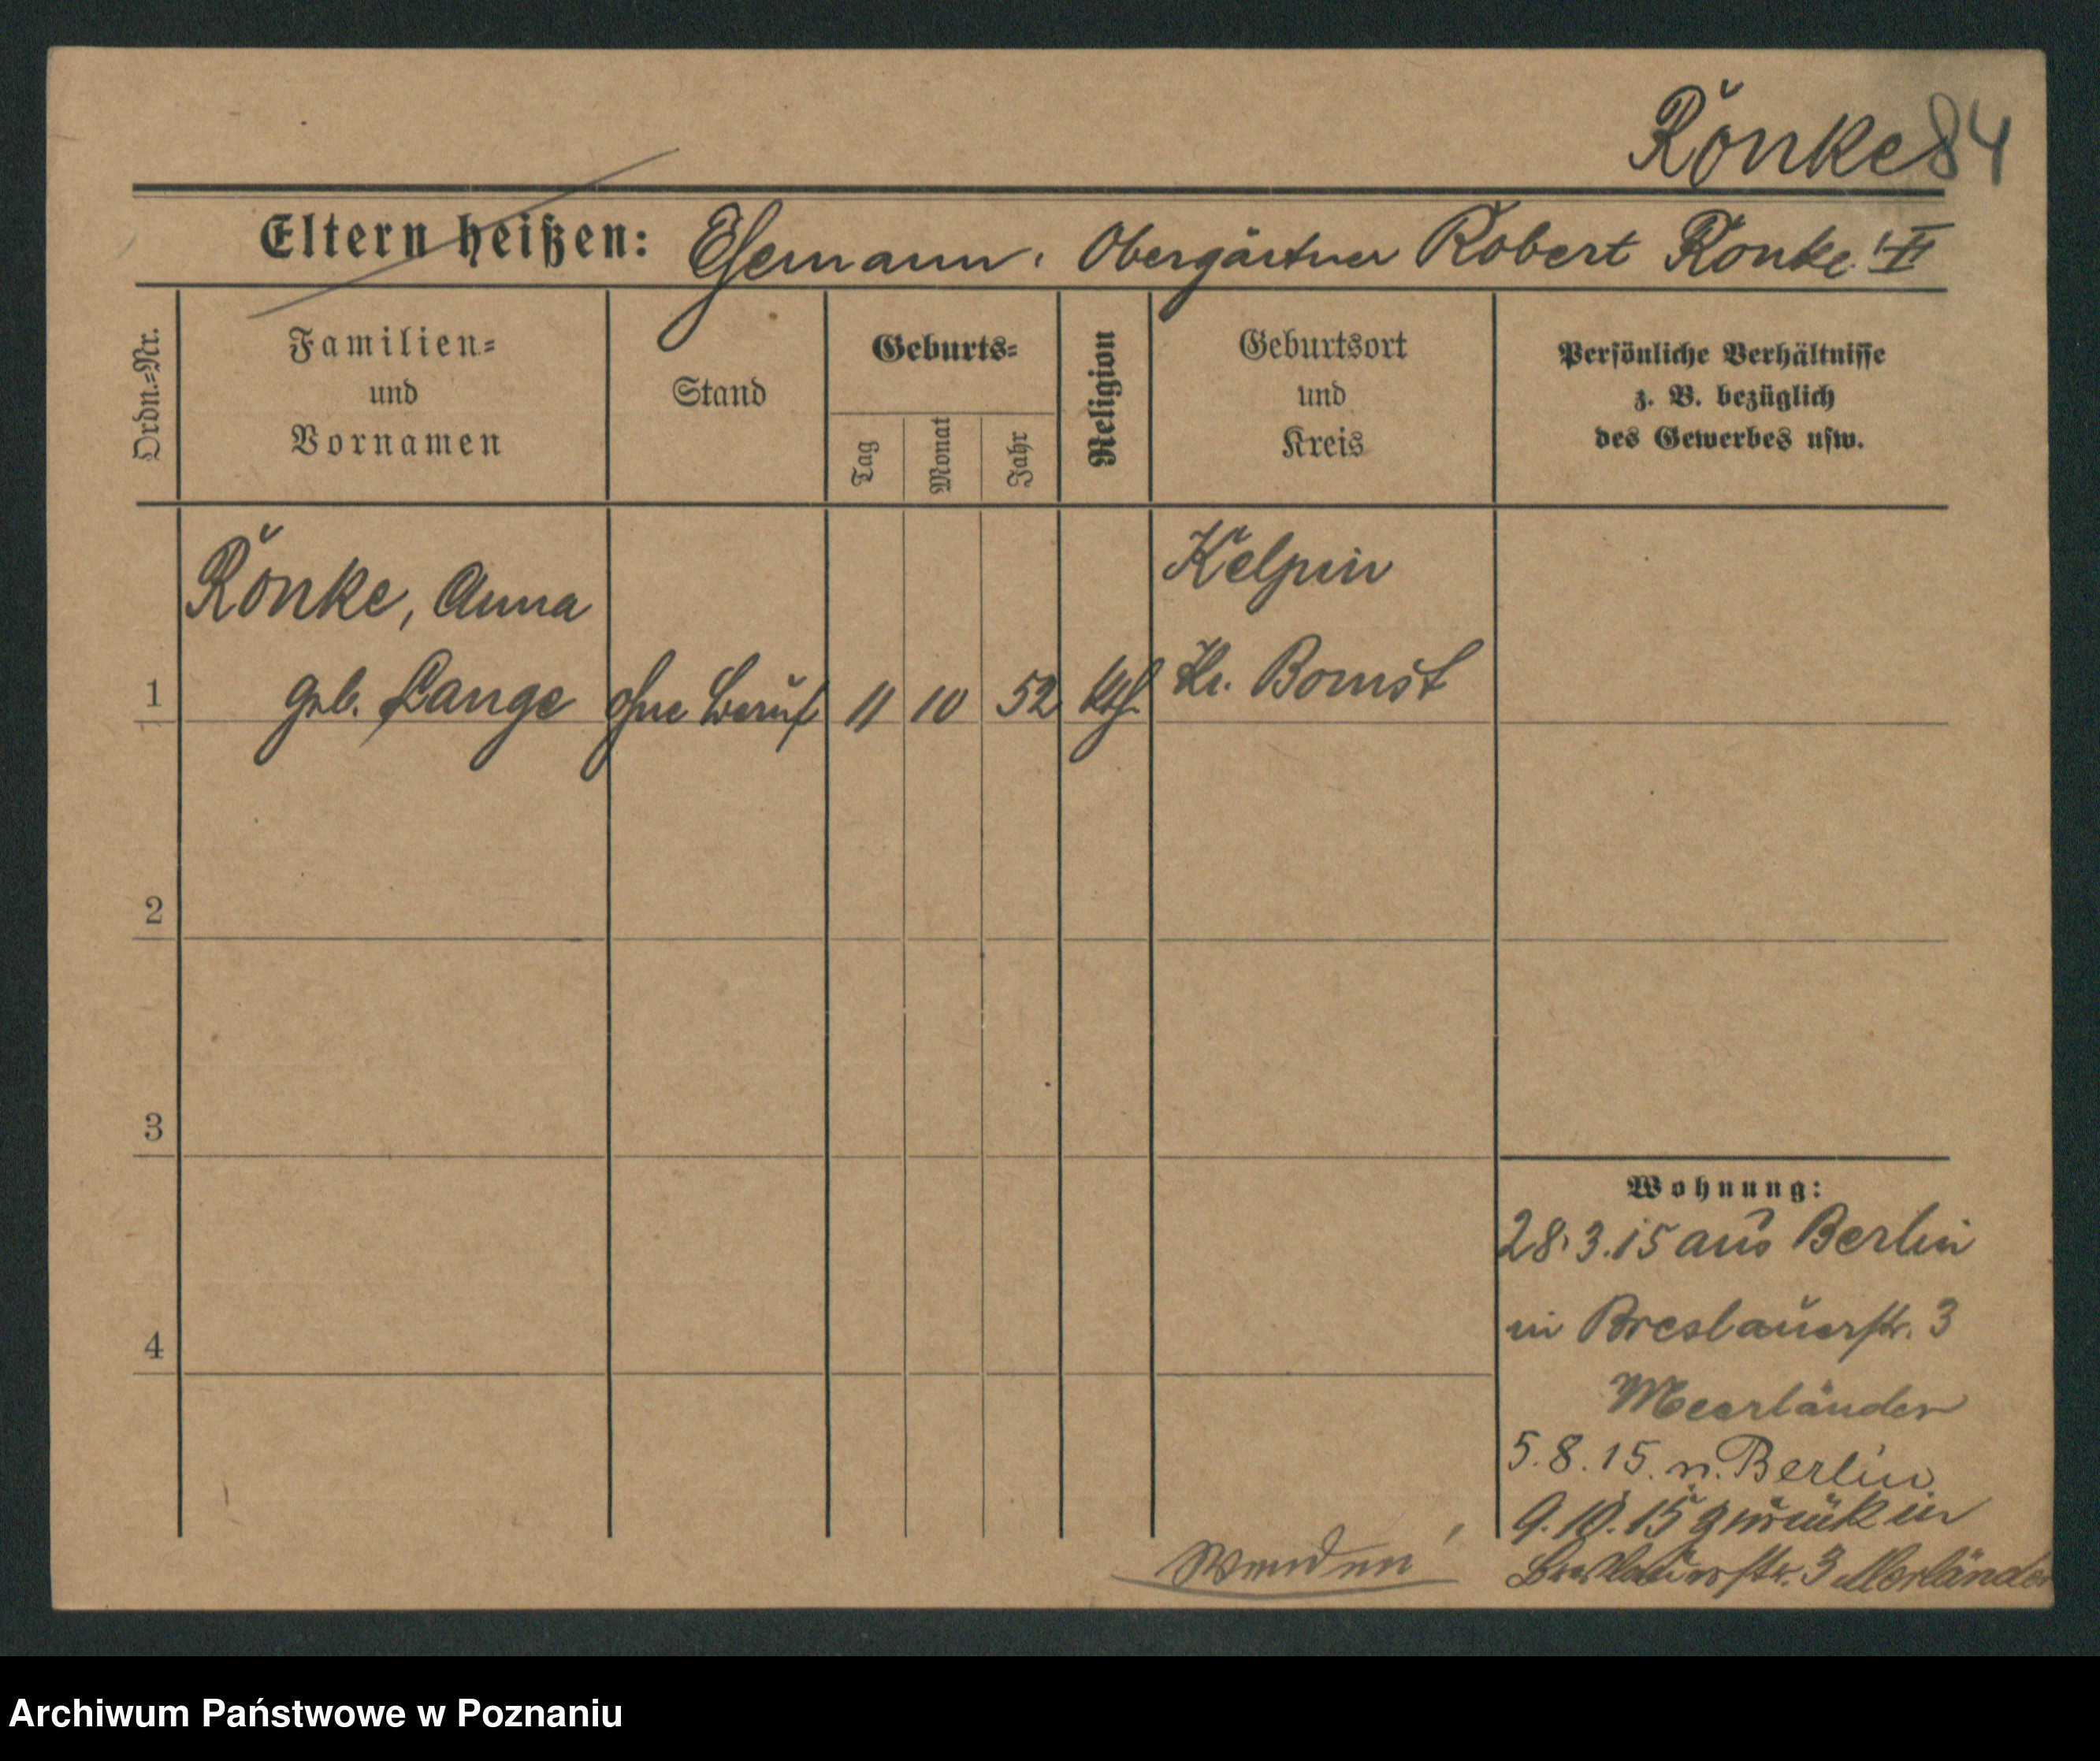 Rönke 84
Eltern heißen: Ehemann, Obergärtner Robert Rönke
Ordn.=Nr.
Familien=
und
Vornamen
Stand
Geburts=
Tag
Monat
Jahr
Religion
Geburtsort
und
Kreis
Persönliche Verhältnisse
z. B. bezüglich
des Gewerbes usw.
Rönke, Anna
geb. Lange
1
ohne Beruf
11
10
52
kth.
Kelpin
Kr. Bomst
2
3
4
Wohnung:
28.3.15 aus Berlin
in Breslauerstr. 3
Meerländer
5.8.15. n. Berlin
9.10.15 zurück in
Breslauerstr. 3 Merländer
Wenden!
Archiwum Państwowe w Poznaniu